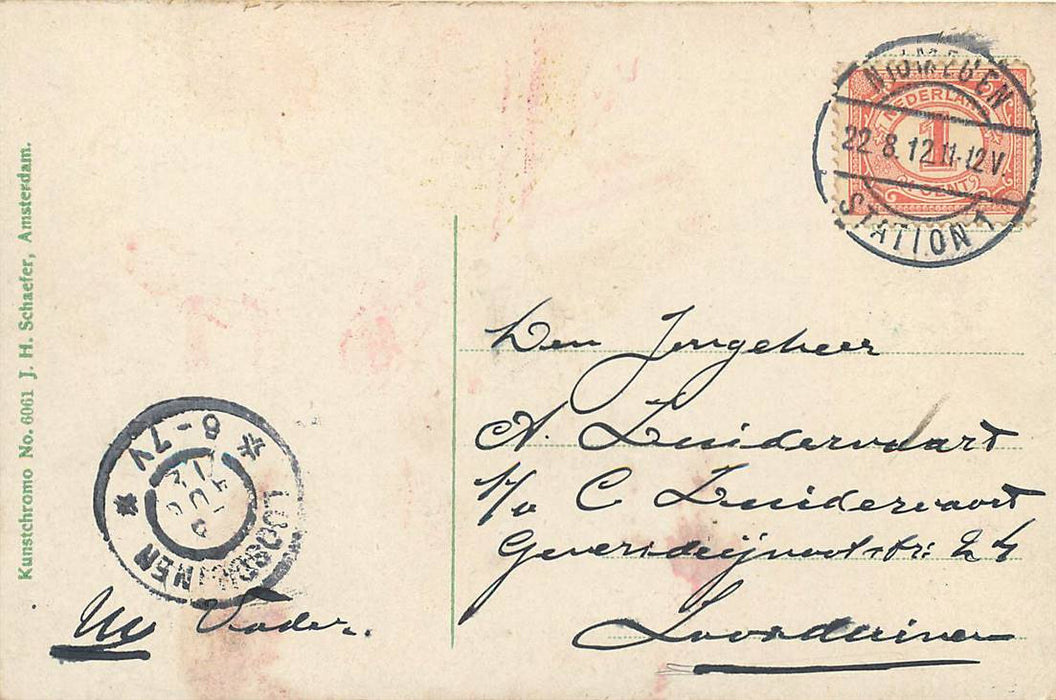 Kunstchromo No. 6061 J. H. Schaefer, Amsterdam.
NIJMEGEN
22.8.12.11-12V.
STATION 1
NEDERLAND
1
CENT
Den Jongeheer
A. Zuidervaart
p/a C Zuidervaart
24
Loosduinen
LOOSDUINEN
* 6-7V *
12
Uw Vader.